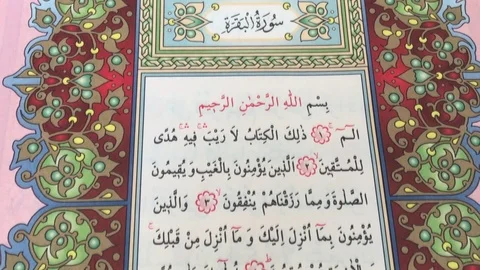 سُورَةُ الْبَقَرَةِ
بِسْمِ اللّٰهِ الرَّحْمٰنِ الرَّحِيمِ
الٓمٓ ﴿١﴾ ذٰلِكَ الْكِتَابُ لَا رَيْبَ ۛ فِيهِ ۛ هُدًى
لِلْمُتَّقِينَ ﴿٢﴾ اَلَّذِينَ يُؤْمِنُونَ بِالْغَيْبِ وَيُقِيمُونَ
الصَّلٰوةَ وَمِمَّا رَزَقْنَاهُمْ يُنْفِقُونَ ﴿٣﴾ وَالَّذِينَ
يُؤْمِنُونَ بِمَٓا اُنْزِلَ اِلَيْكَ وَمَٓا اُنْزِلَ مِنْ قَبْلِكَ